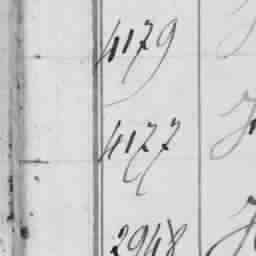 4179
4177
2948